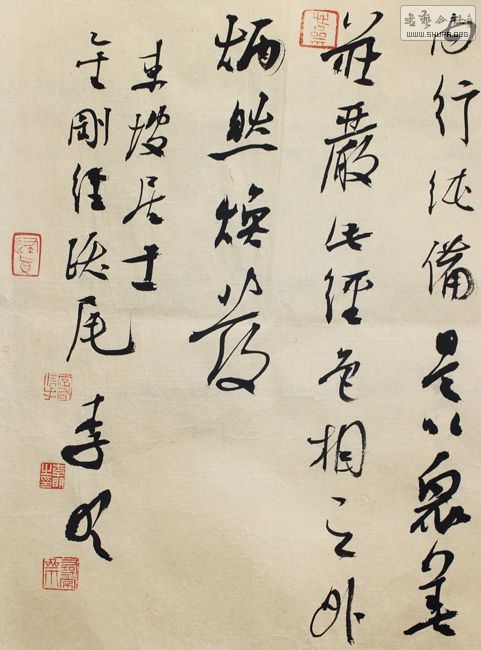 内行純備是以眾善
莊嚴此經色相之外
炳然煥發
東坡居士
金剛經跋尾 李
書藝公社
www.shufa.org